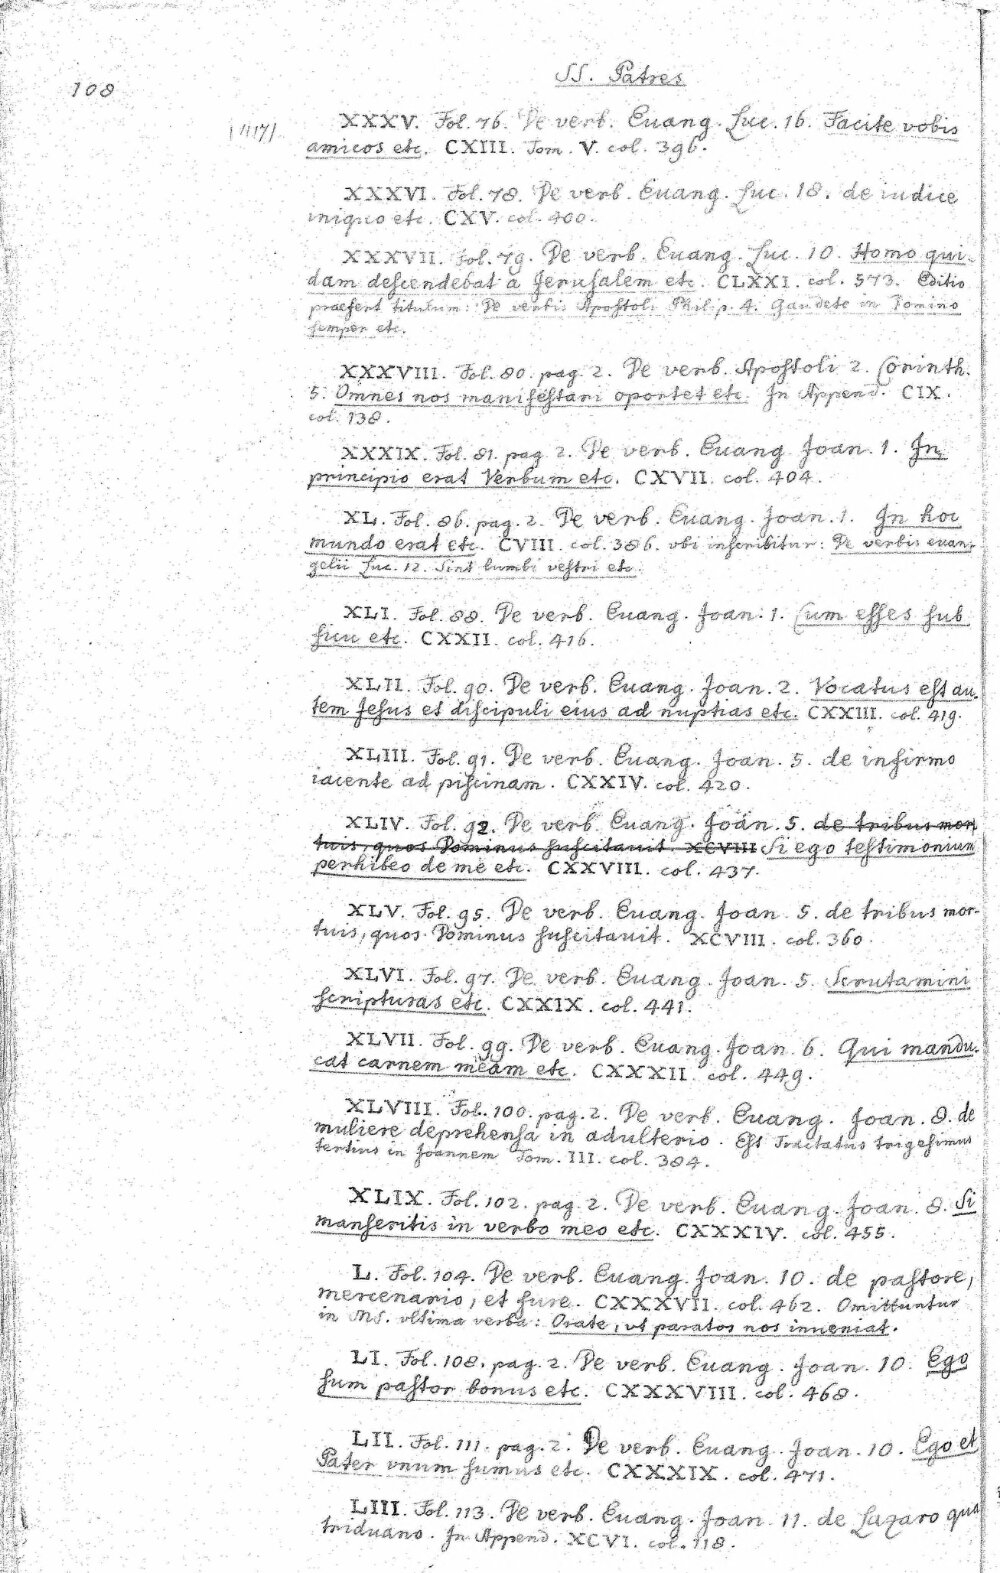 SS. Patres
108
XXXV. Fol. 76. De verb. Euang. Luc. 16. Facite vobis
amicos etc. CXIII. Tom. V. col. 396.
XXXVI. Fol. 78. De verb. Euang. Luc. 18. de iudice
iniquo etc. CXV. col. 400.
XXXVII. Fol. 79. De verb. Euang. Luc. 10. Homo qui-
dam descendebat a Jerusalem etc. CLXXI. col. 573. Editio
praefert titulum: De verbis Apostoli Philip. 4. Gaudete in Domino
semper etc.
XXXVIII. Fol. 80. pag. 2. De verb. Apostoli 2. Corinth.
5. Omnes nos manifestari oportet etc. In Append. CIX.
col. 138.
XXXIX. Fol. 81. pag. 2. De verb. Euang. Joan. 1. In
principio erat Verbum etc. CXVII. col. 404.
XL. Fol. 86. pag. 2. De verb. Euang. Joan. 1. In hoc
mundo erat etc. CVIII. col. 386. vbi inscribitur: De verbis euan-
gelii Luc. 12. Sint lumbi vestri etc.
XLI. Fol. 88. De verb. Euang. Joan. 1. Cum esses sub
ficu etc. CXXII. col. 416.
XLII. Fol. 90. De verb. Euang. Joan. 2. Vocatus est au-
tem Jesus et discipuli eius ad nuptias etc. CXXIII. col. 419.
XLIII. Fol. 91. De verb. Euang. Joan. 5. de infirmo
iacente ad piscinam. CXXIV. col. 420.
XLIV. Fol. 92. De verb. Euang. Joan. 5. de tribus mor-
tuis, quos Dominus suscitauit. XCVIII Si ego testimonium
perhibeo de me etc. CXXVIII. col. 437.
XLV. Fol. 95. De verb. Euang. Joan. 5. de tribus mor-
tuis, quos Dominus suscitauit. XCVIII. col. 360.
XLVI. Fol. 97. De verb. Euang. Joan. 5. Scrutamini
scripturas etc. CXXIX. col. 441.
XLVII. Fol. 99. De verb. Euang. Joan. 6. Qui mandu-
cat carnem meam etc. CXXXII. col. 449.
XLVIII. Fol. 100. pag. 2. De verb. Euang. Joan. 8. de
muliere deprehensa in adulterio. Est Tractatus trigesimus
tertius in Joannem Tom. III. col. 384.
XLIX. Fol. 102. pag. 2. De verb. Euang. Joan. 8. Si
manseritis in verbo meo etc. CXXXIV. col. 455.
L. Fol. 104. De verb. Euang. Joan. 10. de pastore,
mercenario, et fure. CXXXVII. col. 462. Omittuntur
in MS. vltima verba: Orate, vt paratos nos inueniat.
LI. Fol. 108. pag. 2. De verb. Euang. Joan. 10. Ego
sum pastor bonus etc. CXXXVIII. col. 468.
LII. Fol. 111. pag. 2. De verb. Euang. Joan. 10. Ego et
Pater vnum sumus etc. CXXXIX. col. 471.
LIII. Fol. 113. De verb. Euang. Joan. 11. de Lazaro qua
triduano. In Append. XCVI. col. 118.